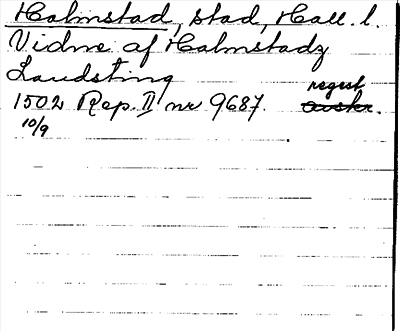 Halmstad, stad, Hall. l.
Vidne af Halmstadz
Landsting
regest
1502 Rep. II nr 9687. avskr.
10/9